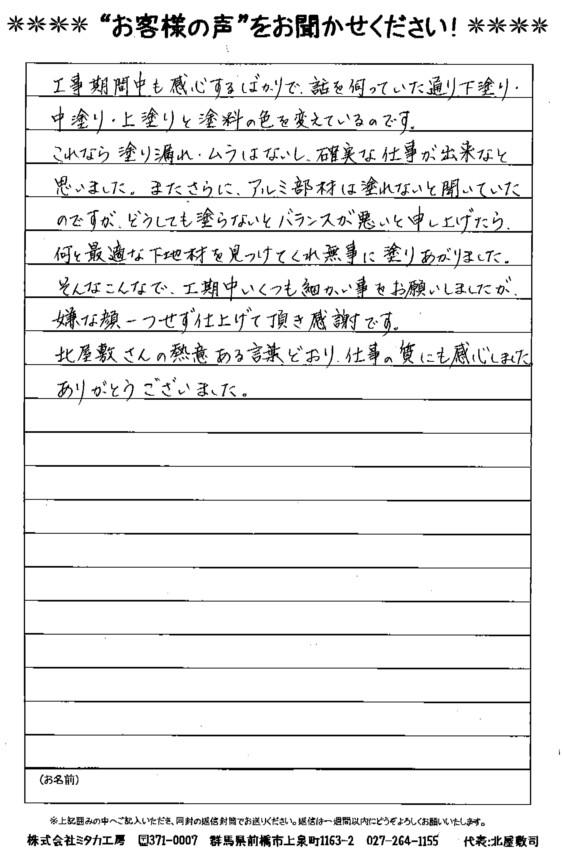 ＊＊＊＊ “お客様の声”をお聞かせください！ ＊＊＊＊
工事期間中も感心するばかりで、話を伺っていた通り下塗り・
中塗り・上塗りと塗料の色を変えているのです。
これなら塗り漏れ・ムラはないし、確実な仕事が出来なと
思いました。またさらに、アルミ部材は塗れないと聞いていた
のですが、どうしても塗らないとバランスが悪いと申し上げたら、
何と最適な下地材を見つけてくれ無事に塗りあがりました。
そんなこんなで、工期中いくつも細かい事をお願いしましたが、
嫌な顔一つせず仕上げて頂き感謝です。
北屋敷さんの熱意ある言葉どおり、仕事の質にも感心しました
ありがとうございました。
（お名前）
※上記囲みの中へご記入いただき、同封の返信封筒でお送りください。返信は一週間以内にどうぞよろしくお願いいたします。
株式会社ミタカ工房 〒371-0007 群馬県前橋市上泉町1163-2 027-264-1155 代表:北屋敷司